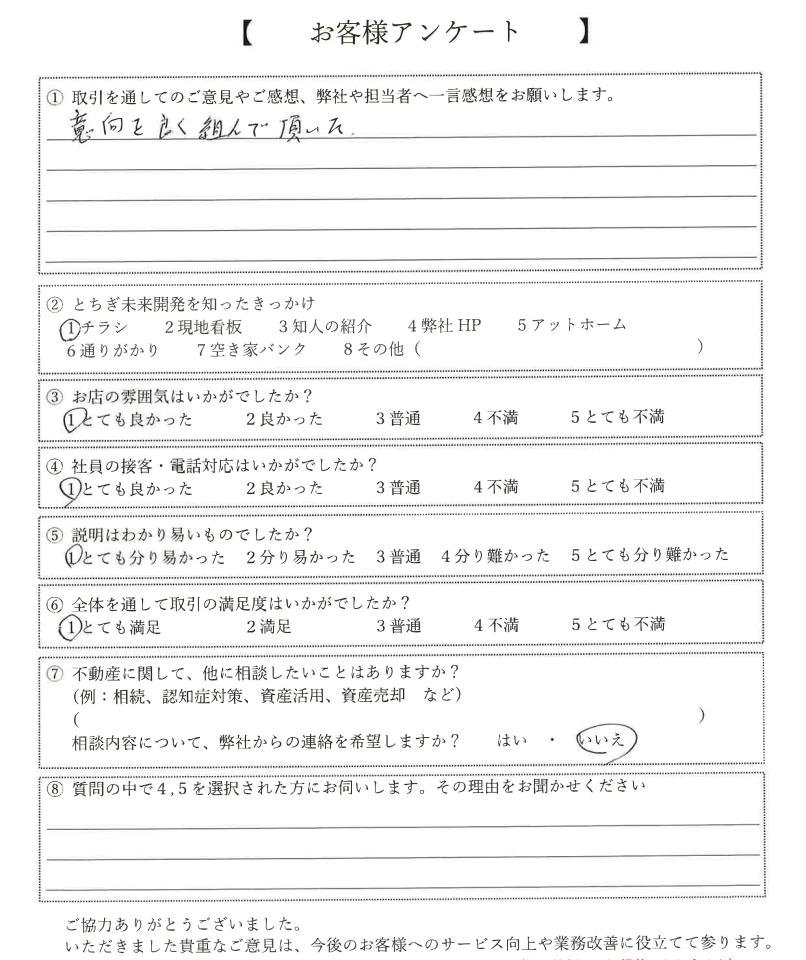 【　お客様アンケート　】
① 取引を通してのご意見やご感想、弊社や担当者へ一言感想をお願いします。
意向を良く組んで頂いた.
② とちぎ未来開発を知ったきっかけ
1チラシ　2現地看板　3知人の紹介　4弊社HP　5アットホーム
6通りがかり　7空き家バンク　8その他（　　　）
③ お店の雰囲気はいかがでしたか？
1とても良かった　2良かった　3普通　4不満　5とても不満
④ 社員の接客・電話対応はいかがでしたか？
1とても良かった　2良かった　3普通　4不満　5とても不満
⑤ 説明はわかり易いものでしたか？
1とても分り易かった　2分り易かった　3普通　4分り難かった　5とても分り難かった
⑥ 全体を通して取引の満足度はいかがでしたか？
1とても満足　2満足　3普通　4不満　5とても不満
⑦ 不動産に関して、他に相談したいことはありますか？
（例：相続、認知症対策、資産活用、資産売却　など）
（　　　）
相談内容について、弊社からの連絡を希望しますか？　はい　・　いいえ
⑧ 質問の中で4,5を選択された方にお伺いします。その理由をお聞かせください
ご協力ありがとうございました。
いただきました貴重なご意見は、今後のお客様へのサービス向上や業務改善に役立てて参ります。